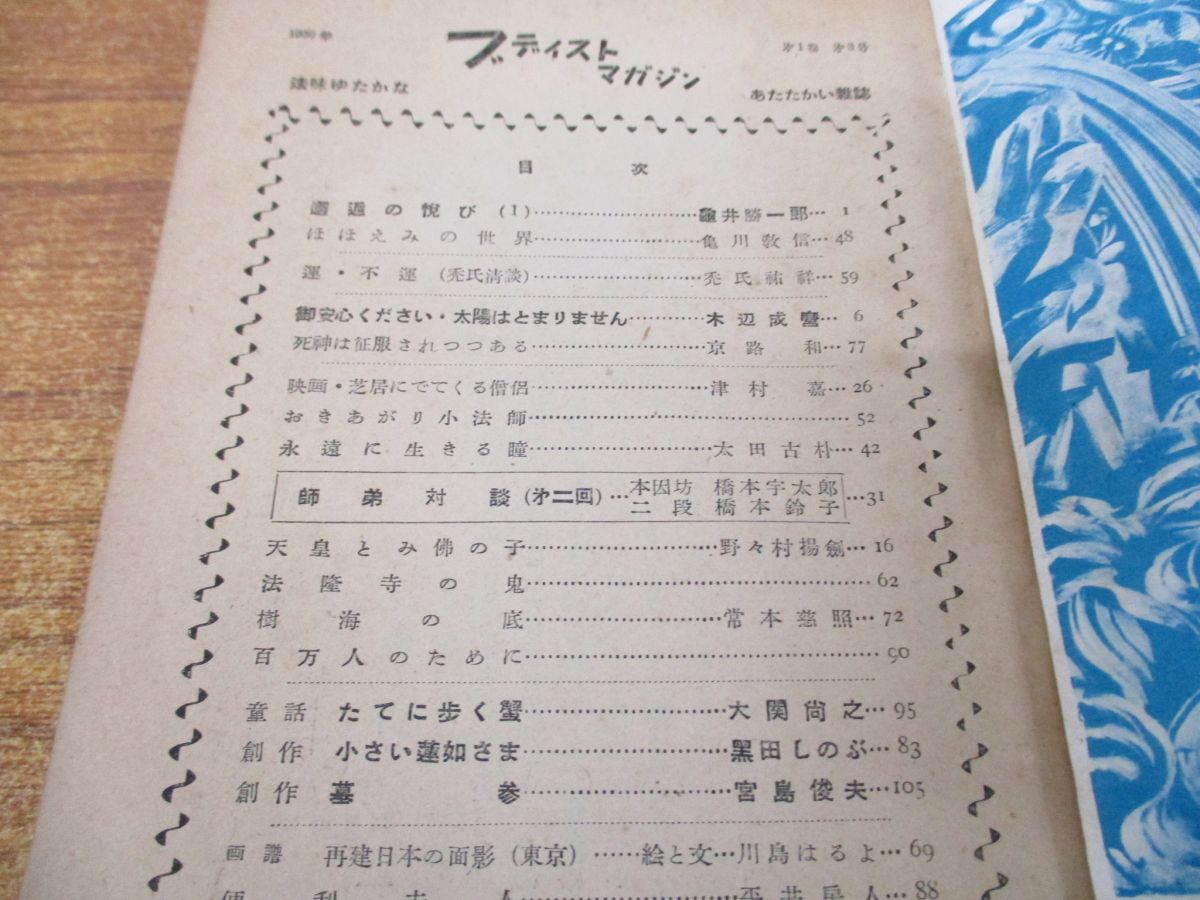 1950年
ブディスト
マガジン
才1巻 才3号
法味ゆたかな
あたたかい雑誌
目次
邂逅の悅び(1)……龜井勝一郎…1
ほほえみの世界……亀川敎信…48
運・不運(禿氏清談)……禿氏祐祥…59
御安心ください・太陽はとまりません……木辺成麿…6
死神は征服されつつある……京路和…77
映画・芝居にでてくる僧侶……津村嘉…26
おきあがり小法師……52
永遠に生きる瞳……太田古朴…42
師弟対談(才二回)…本因坊 橋本宇太郎
二段 橋本鈴子…31
天皇とみ佛の子……野々村揚劍…16
法隆寺の鬼……62
樹海の底……常本慈照…72
百万人のために……90
童話 たてに歩く蟹……大関尚之…95
創作 小さい蓮如さま……黑田しのぶ…83
創作 墓参……宮島俊夫…105
画譜 再建日本の面影(東京)……絵と文…川島はるよ…69
88